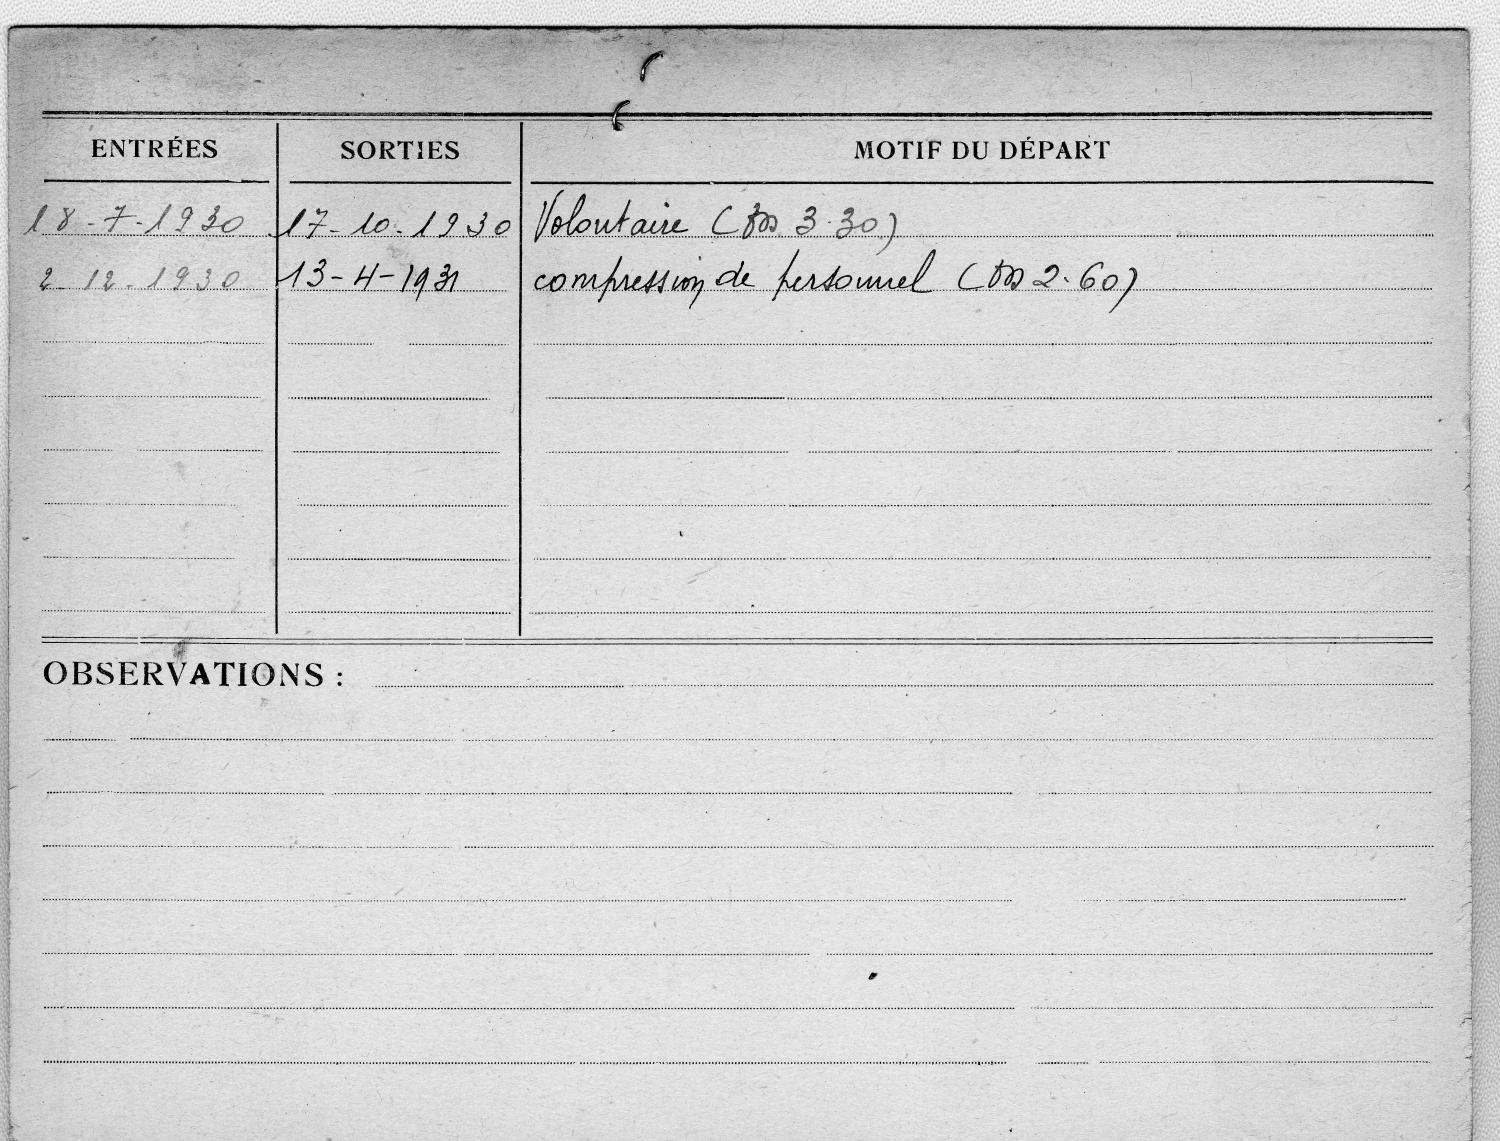 ENTRÉES SORTIES MOTIF DU DÉPART
18-7-1930 17-10-1930 Volontaire ( 3.30)
2-12-1930 13-4-1931 compression de personnel ( 2.60)
OBSERVATIONS :